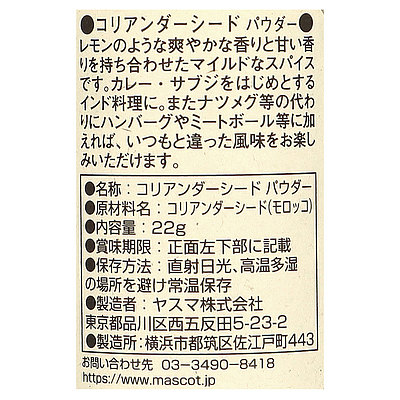 ●コリアンダーシード パウダー●
レモンのような爽やかな香りと甘い香
りを持ち合わせたマイルドなスパイス
です。カレー・サブジをはじめとする
インド料理に。またナツメグ等の代わ
りにハンバーグやミートボール等に加
えれば、いつもと違った風味をお楽し
みいただけます。
●名称：コリアンダーシード パウダー
●原材料名：コリアンダーシード(モロッコ)
●内容量：22g
●賞味期限：正面左下部に記載
●保存方法：直射日光、高温多湿
の場所を避け常温保存
●製造者：ヤスマ株式会社
東京都品川区西五反田5-23-2
●製造所：横浜市都筑区佐江戸町443
お問い合わせ先 03-3490-8418
https://www.mascot.jp/